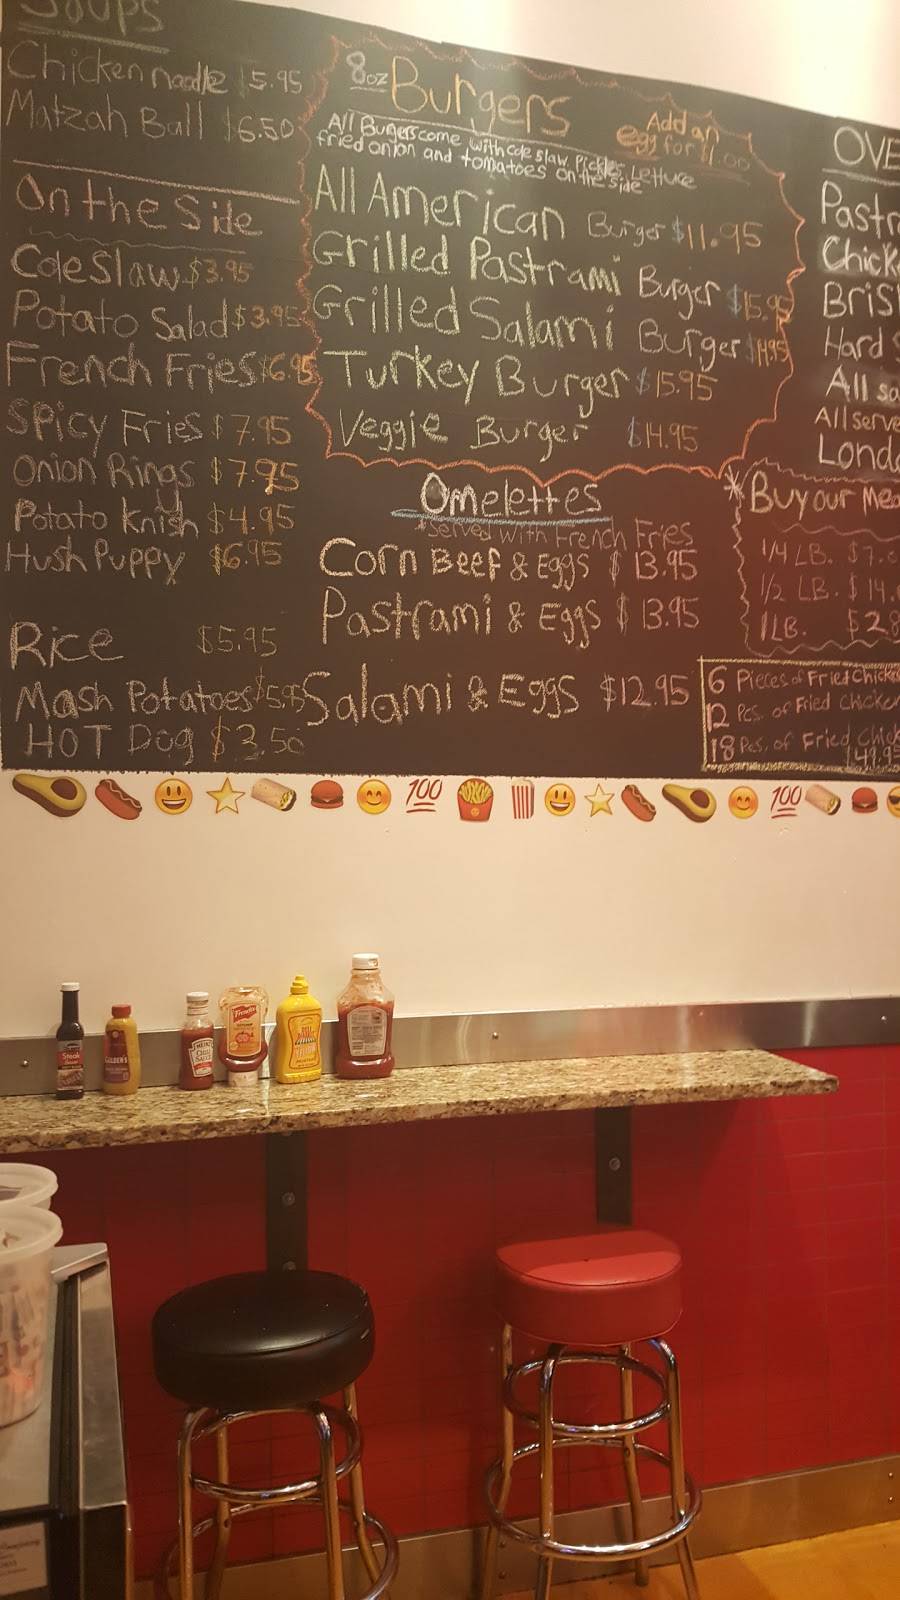 Soups
Chicken noodle $5.95
Matzah Ball $6.50
On the Side
Coleslaw $3.95
Potato Salad $3.95
French Fries $6.95
Spicy Fries $7.95
Onion Rings $7.95
Potato Knish $4.95
Hush Puppy $6.95
Rice $5.95
Mash Potatoes $5.95
HOT Dog $3.50
8oz Burgers
Add an
egg for $1.00
All Burgers come with cole slaw, Pickles, Lettuce
fried onion and tomatoes on the side
All American Burger $11.95
Grilled Pastrami Burger $15.95
Grilled Salami Burger $14.95
Turkey Burger $15.95
Veggie Burger $14.95
Omelettes
*Served with French Fries
Corn Beef & Eggs $13.95
Pastrami & Eggs $13.95
Salami & Eggs $12.95
OVE
Pastr
Chick
Bris
Hard S
All sa
All serve
Londo
*Buy our Mea
1/4 LB. $7.
1/2 LB. $14.
1 LB. $28
6 Pieces of Fried Chicke
12 Pcs. of Fried Chicken
18 Pcs. of Fried Chick
49.95
100
100
Steak
Sauce
GULDEN'S
HEINZ
CHILI
SAUCE
French's
KETCHUP
YELLOW
MUSTARD